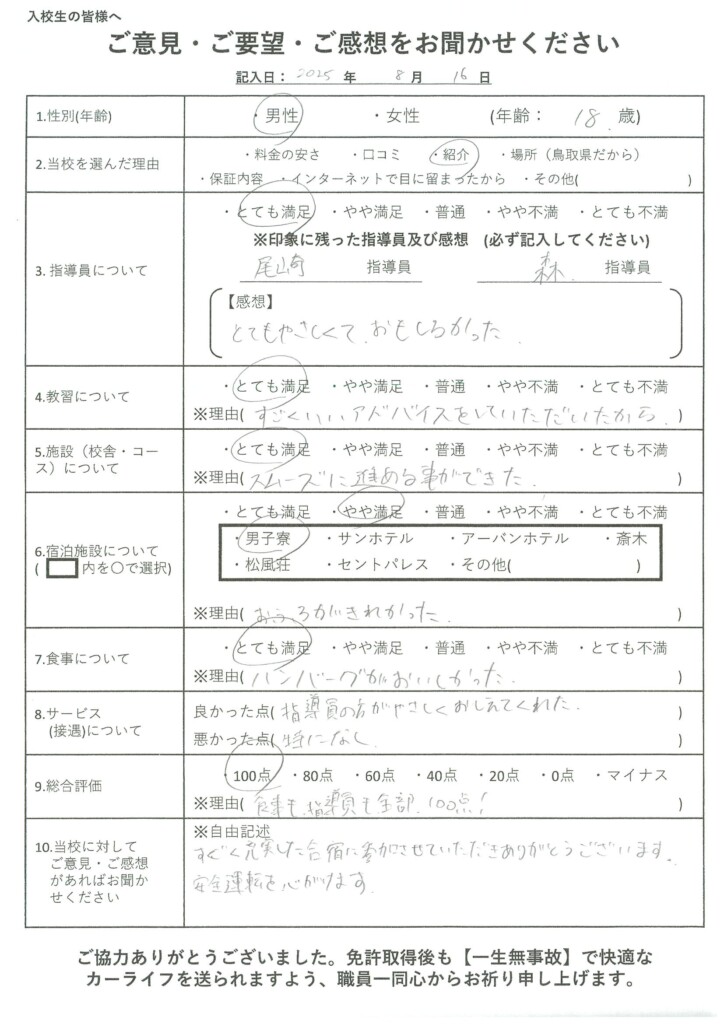 入校生の皆様へ
ご意見・ご要望・ご感想をお聞かせください
記入日： 2025 年 8 月 16 日
1.性別(年齢) ・男性 ・女性 (年齢： 18 歳)
2.当校を選んだ理由 ・料金の安さ ・口コミ ・紹介 ・場所（鳥取県だから）
・保証内容 ・インターネットで目に留まったから ・その他( )
3. 指導員について ・とても満足 ・やや満足 ・普通 ・やや不満 ・とても不満
※印象に残った指導員及び感想 (必ず記入してください)
尾崎 指導員 森 指導員
【感想】
とてもやさしくて、おもしろかった
4.教習について ・とても満足 ・やや満足 ・普通 ・やや不満 ・とても不満
※理由( すごくいいアドバイスをしていただいたから )
5.施設（校舎・コース）について ・とても満足 ・やや満足 ・普通 ・やや不満 ・とても不満
※理由( スムーズに進める事ができた. )
6.宿泊施設について ・とても満足 ・やや満足 ・普通 ・やや不満 ・とても不満
( 内を○で選択) ・男子寮 ・サンホテル ・アーバンホテル ・斎木
・松風荘 ・セントパレス ・その他( )
※理由( おふろがきれかった. )
7.食事について ・とても満足 ・やや満足 ・普通 ・やや不満 ・とても不満
※理由( ハンバーグがおいしかった. )
8.サービス 良かった点( 指導員の方がやさしくおしえてくれた. )
(接遇)について 悪かった点( 特になし )
9.総合評価 ・100点 ・80点 ・60点 ・40点 ・20点 ・0点 ・マイナス
※理由( 食事も、指導員も全部、100点! )
10.当校に対して ※自由記述
ご意見・ご感想 すごく充実した合宿に参加させていただきありがとうございます.
があればお聞か 安全運転を心がけます
せください
ご協力ありがとうございました。免許取得後も【一生無事故】で快適な
カーライフを送られますよう、職員一同心からお祈り申し上げます。